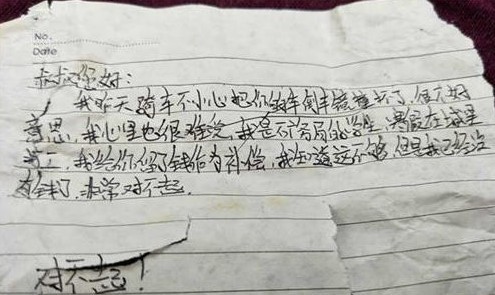 No.
Date
叔叔您好：
我昨天骑车不小心把你的车倒车镜撞坏了，很不好
意思，我心里也很难受，我是 的学生，寒假在城里
打工，我给你留了钱作为补偿，我知道这不够，但是我已经没
有钱了，非常对不起。
对不起！